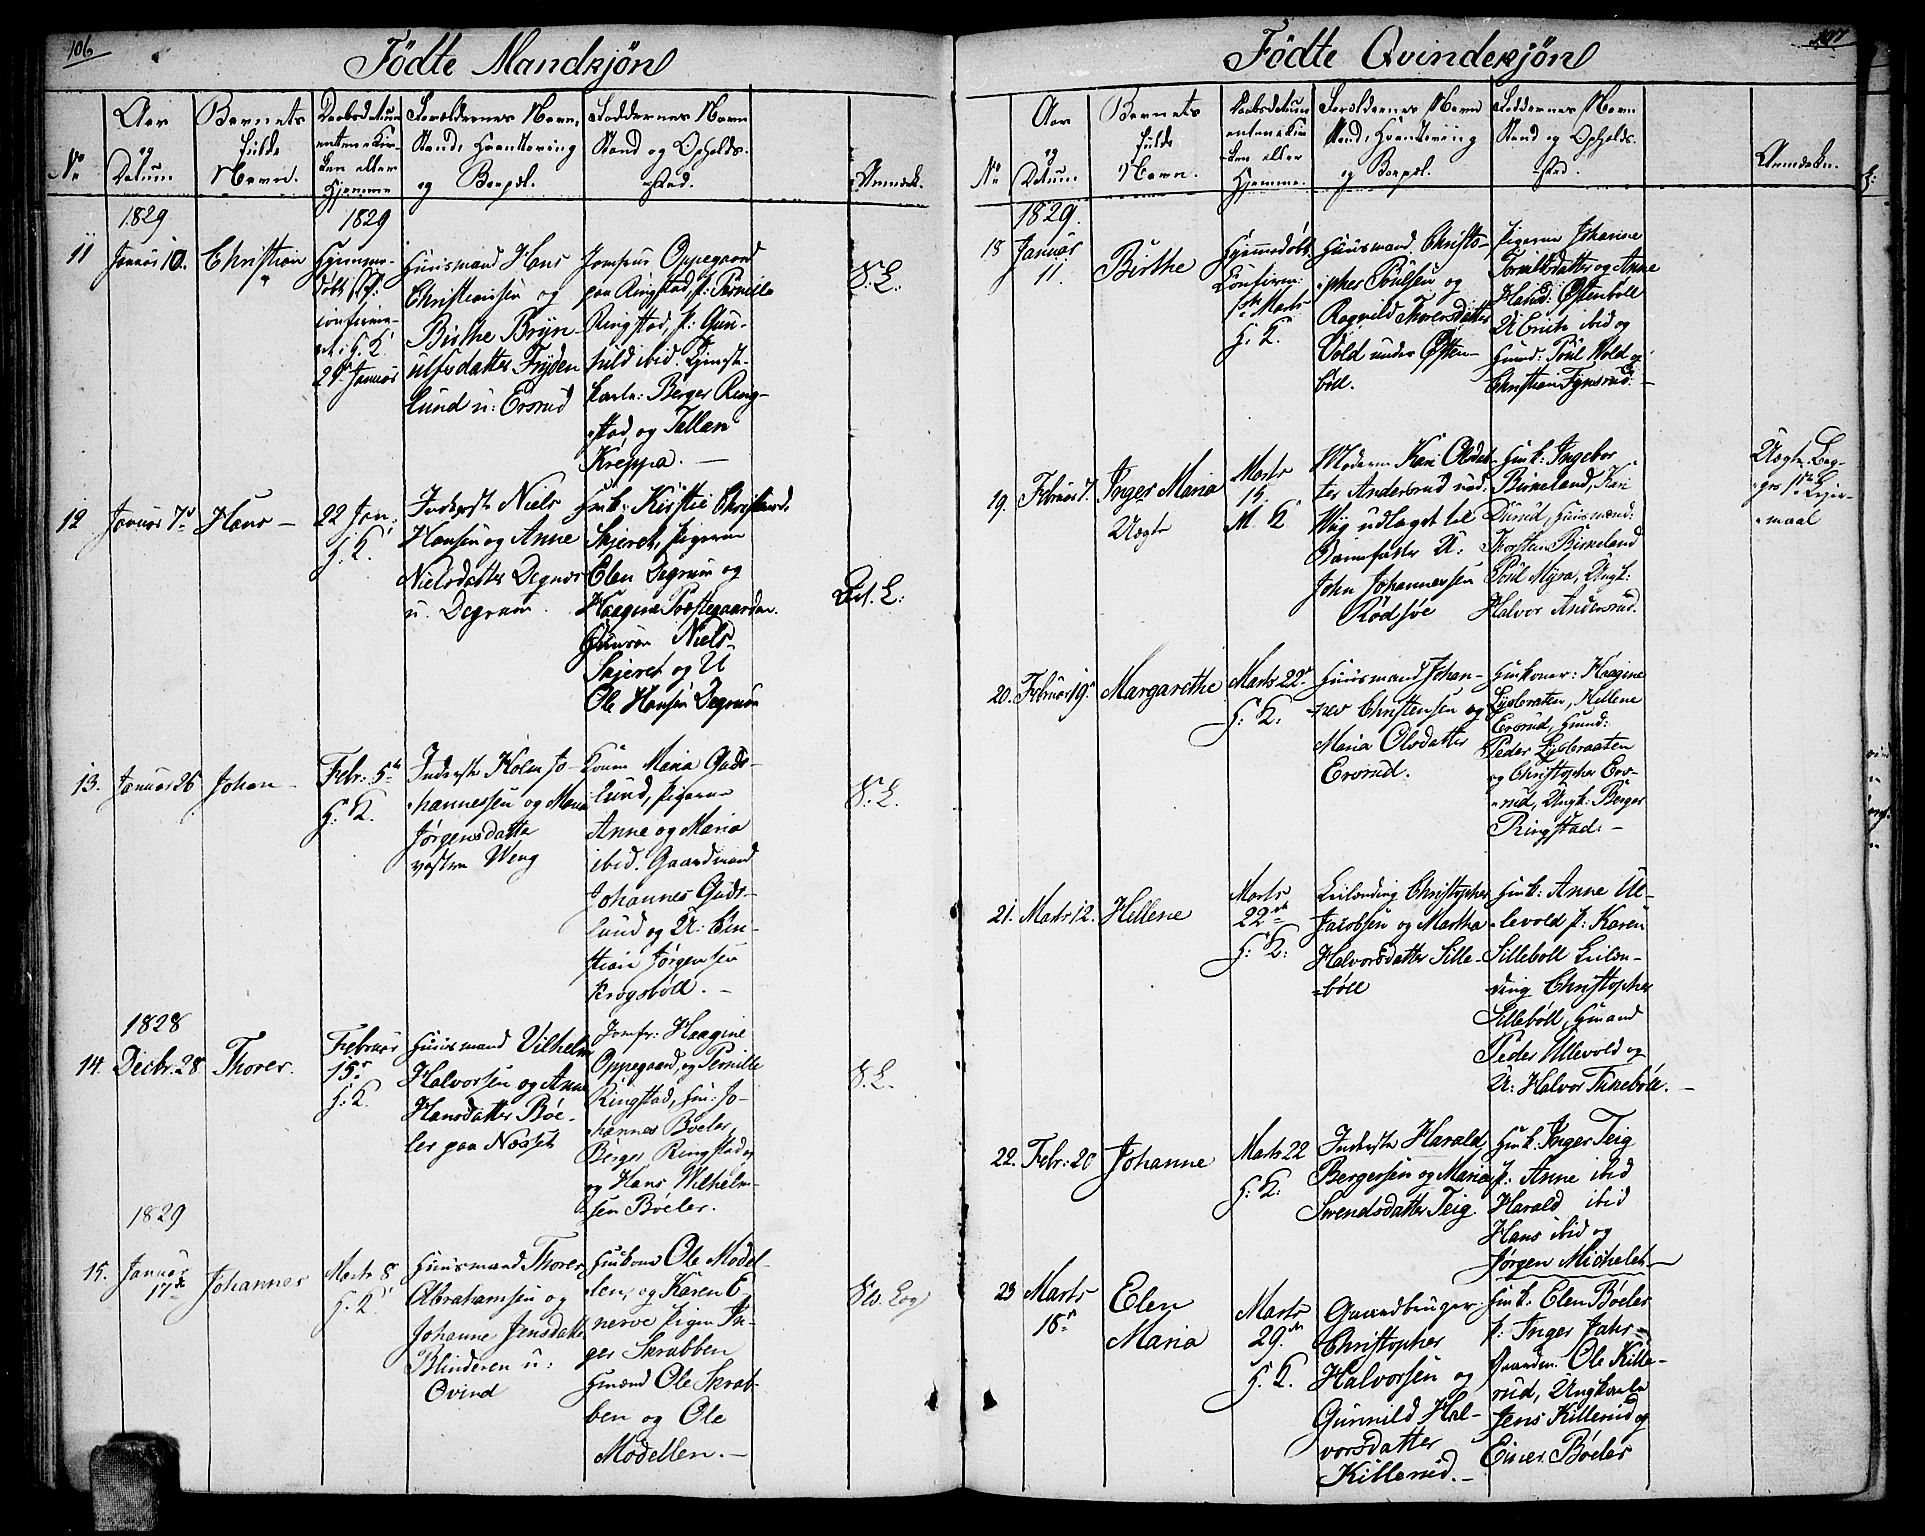 106
Födte Mandkjön
No
Aar
og
Datum.
Barnets
fulde
Navn.
Daabsdatum
enten i Kir-
ken eller
Hjemme
Forældrenes Navn,
Stand, Haantering
og Bopæl.
Faddernes Navn
Stand og Opholds-
sted.
Anmærk.
1829
1829
11
Januar 10.
Christian
Hjemme-
döbt
confirme-
ret i H. K.
29 Januar
Huusmand Hans
Christiansen og
Birthe Bryn-
ulfsdatter Fryden
lund u: Ersrud
Jomfrue Oppegaard
paa Ringstad, p: Pernille
Ringstad, p: Gun-
hild ibid.
karle: Berger Ring-
stad og Tellan
Kreppa. —
S. L.
12
Januar 7de
Hans —
22 Jan:
H. K.
Inderste Niels
Hansen og Anne
Nielsdatter Degnæs
u. Degrum.
Huk: Kirstie
Sajeret, pigerne
Elen Degrum og
Haagine Præstegaarden.
Niels
Sajeret og U
Ole Hansen Degrum
L:
13.
Januar 26
Johan —
Febr: 5te
H. K.
Inderste Holm Jo-
hannessen og Maria
Jørgensdatter
vestre Weng
Konen Maria Guds-
lund, pigerne
Anne og Maria
ibid. Gaardmand
Johannes Guds-
lund og U:
Jørgensen
Krogsböll. —
S. L.
1828
14.
Decbr. 28
Thorer.
Februar
15de
H. K.
Huusmand Vilhelm
Halvorsen og Anne
Hansdatter Böe-
ler paa Næsset
Jomfr: Haagine
Oppegaard, og Pernille
Ringstad, Hm: Jo-
hannes Böeler,
Berger Ringstad og
og Hans Wilhelm-
sen Böeler.
S. L.
1829
15.
Januar
17de
Johannes
Marts 8
H. K.
Huusmand Thorer
Abrahamsen og
Johanne Jensdatter
Blinderen u:
Ovind
Huukone Ole Model-
len, og Karen E
nerve pigen In-
ger Skrabben
Hmænd Ole Skrab-
ben og Ole
Modellen. —
107
Födte Qvindekjön
No
Aar
og
Datum.
Barnets
fulde
Navn.
Daabsdatum
enten i Kir-
ken eller
Hjemme.
Forældrenes Navn
Stand, Haantering
og Bopæl.
Faddernes Navn
Stand og Opholds-
sted.
Anmærkn.
1829.
18
Januar
11.
Birthe
Hjemmedöbt
Confirm:
1ste Marts
H. K.
Huusmand Christo-
pher Poulsen og
Ragnild Thorersdatter
Vold under Østen-
böll.
Pigerne Johanne
Torsildsdatter og Anne
Hansd: Østenböll
ibid og
Hmd: Poul Wold og
Christian Fynsrud. —
19.
Februar 7.
Inger Maria
Uægte
Marts
15.
M. K
Moderen Kari Olsdat-
ter Andersrud
Weg udlagt til
Barnefader U:
John Johannessen
Rödsöe
Huk: Ingebor
Birkeland, Kari
Dusud, Huusmænd:
Thorsten Birkeland
Poul Myra, Ungk:
Halvor Andersrud.
Uægte Beg-
ges 1ste Leier-
maal
20.
Februar 19de
Margarethe
Marts 22de
H. K:
Huusmand Johan-
nes Christensen og
Maria Olsdatter
Ersrud.
Hmkoner: Haagine
Lysbraten, Hellene
Ersrud, Hmd:
Peder Lysbraaten
og Christopher Ers-
rud, Ungk: Berger
Ringstad: —
21.
Marts 12.
Hellene
Marts
22de
H. K:
Leilænding Christopher
Jacobsen og Martha
Halvorsdatter Sille-
böll
Hmk: Anne Ul-
levold p: Karen
Silleböll Leilæn-
ding Christopher
Silleböll, Hmand
Peder Ullevold og
U: Halvor Finneböll. —
22.
Febr: 20
Johanne
Marts 22
H. K:
Inderste Harald
Bergersen og Maria
Swendsdatter Teig.
Hmk: Inger Teig
p: Anne ibid
Harald ibid
Hans ibid og
Jörgen Michelet —
23
Marts
18de
Elen
Maria
Marts
29de
H. K.
Gaardbruger
Christopher
Halvorsen og
Gunnild Hal-
vorsdatter
Killerud. —
Hmk: Elen Böeler
p: Inger Jahr
Gaardm. Ole Kille-
rud, Ungkarle
Jens Killerud og
Einer Böeler